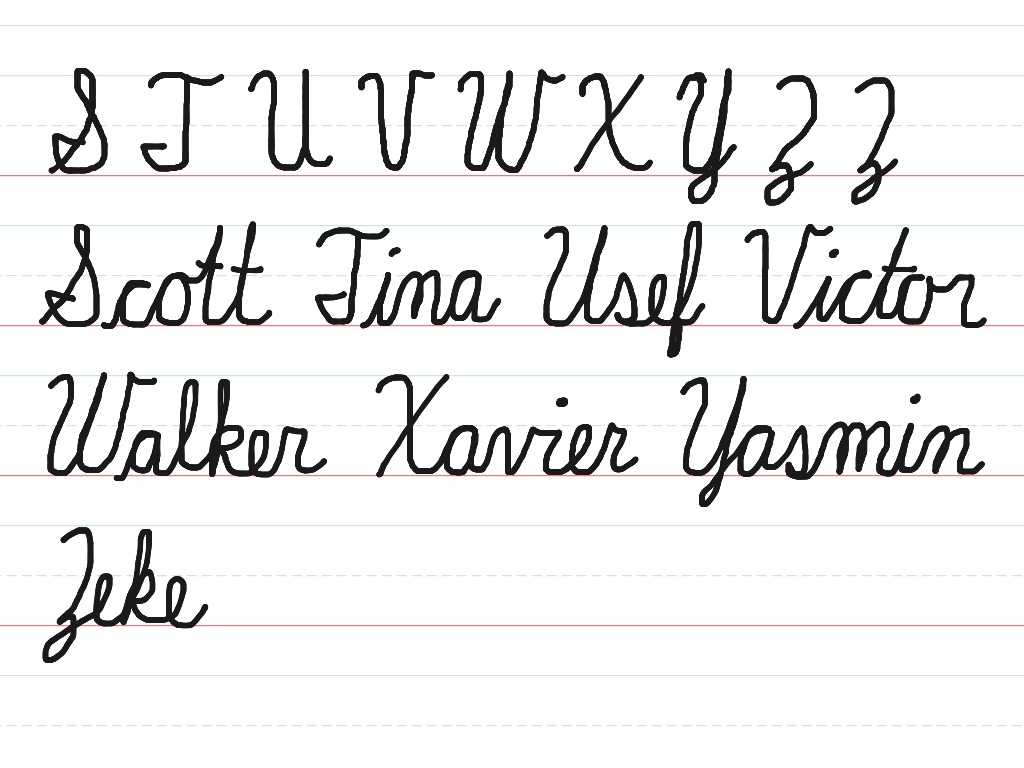 S T U V W X Y Z Z
Scott Tina Usef Victor
Walker Xavier Yasmin
Zeke